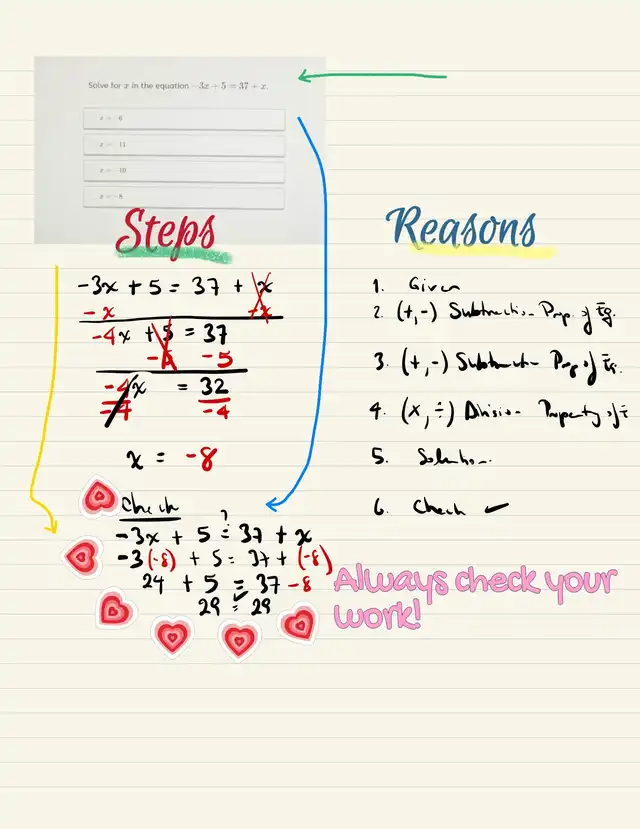 Solve for x in the equation −3x + 5 = 37 + x.
x = −6
x = −11
x = −10
x = −8
Steps
-3x + 5 = 37 + x
- x - x
-4x + 5 = 37
- 5 - 5
-4x = 32
-4 -4
x = -8
Check
?
-3x + 5 = 37 + x
-3(-8) + 5 = 37 + (-8)
24 + 5 = 37 - 8
29 = 29
Reasons
1. Given
2. (+,-) Subtraction Prop. of Eq.
3. (+,-) Subtraction Prop of Eq.
4. (x, ÷) Division Property of =
5. Solution.
6. Check ✓
Always check your
work!